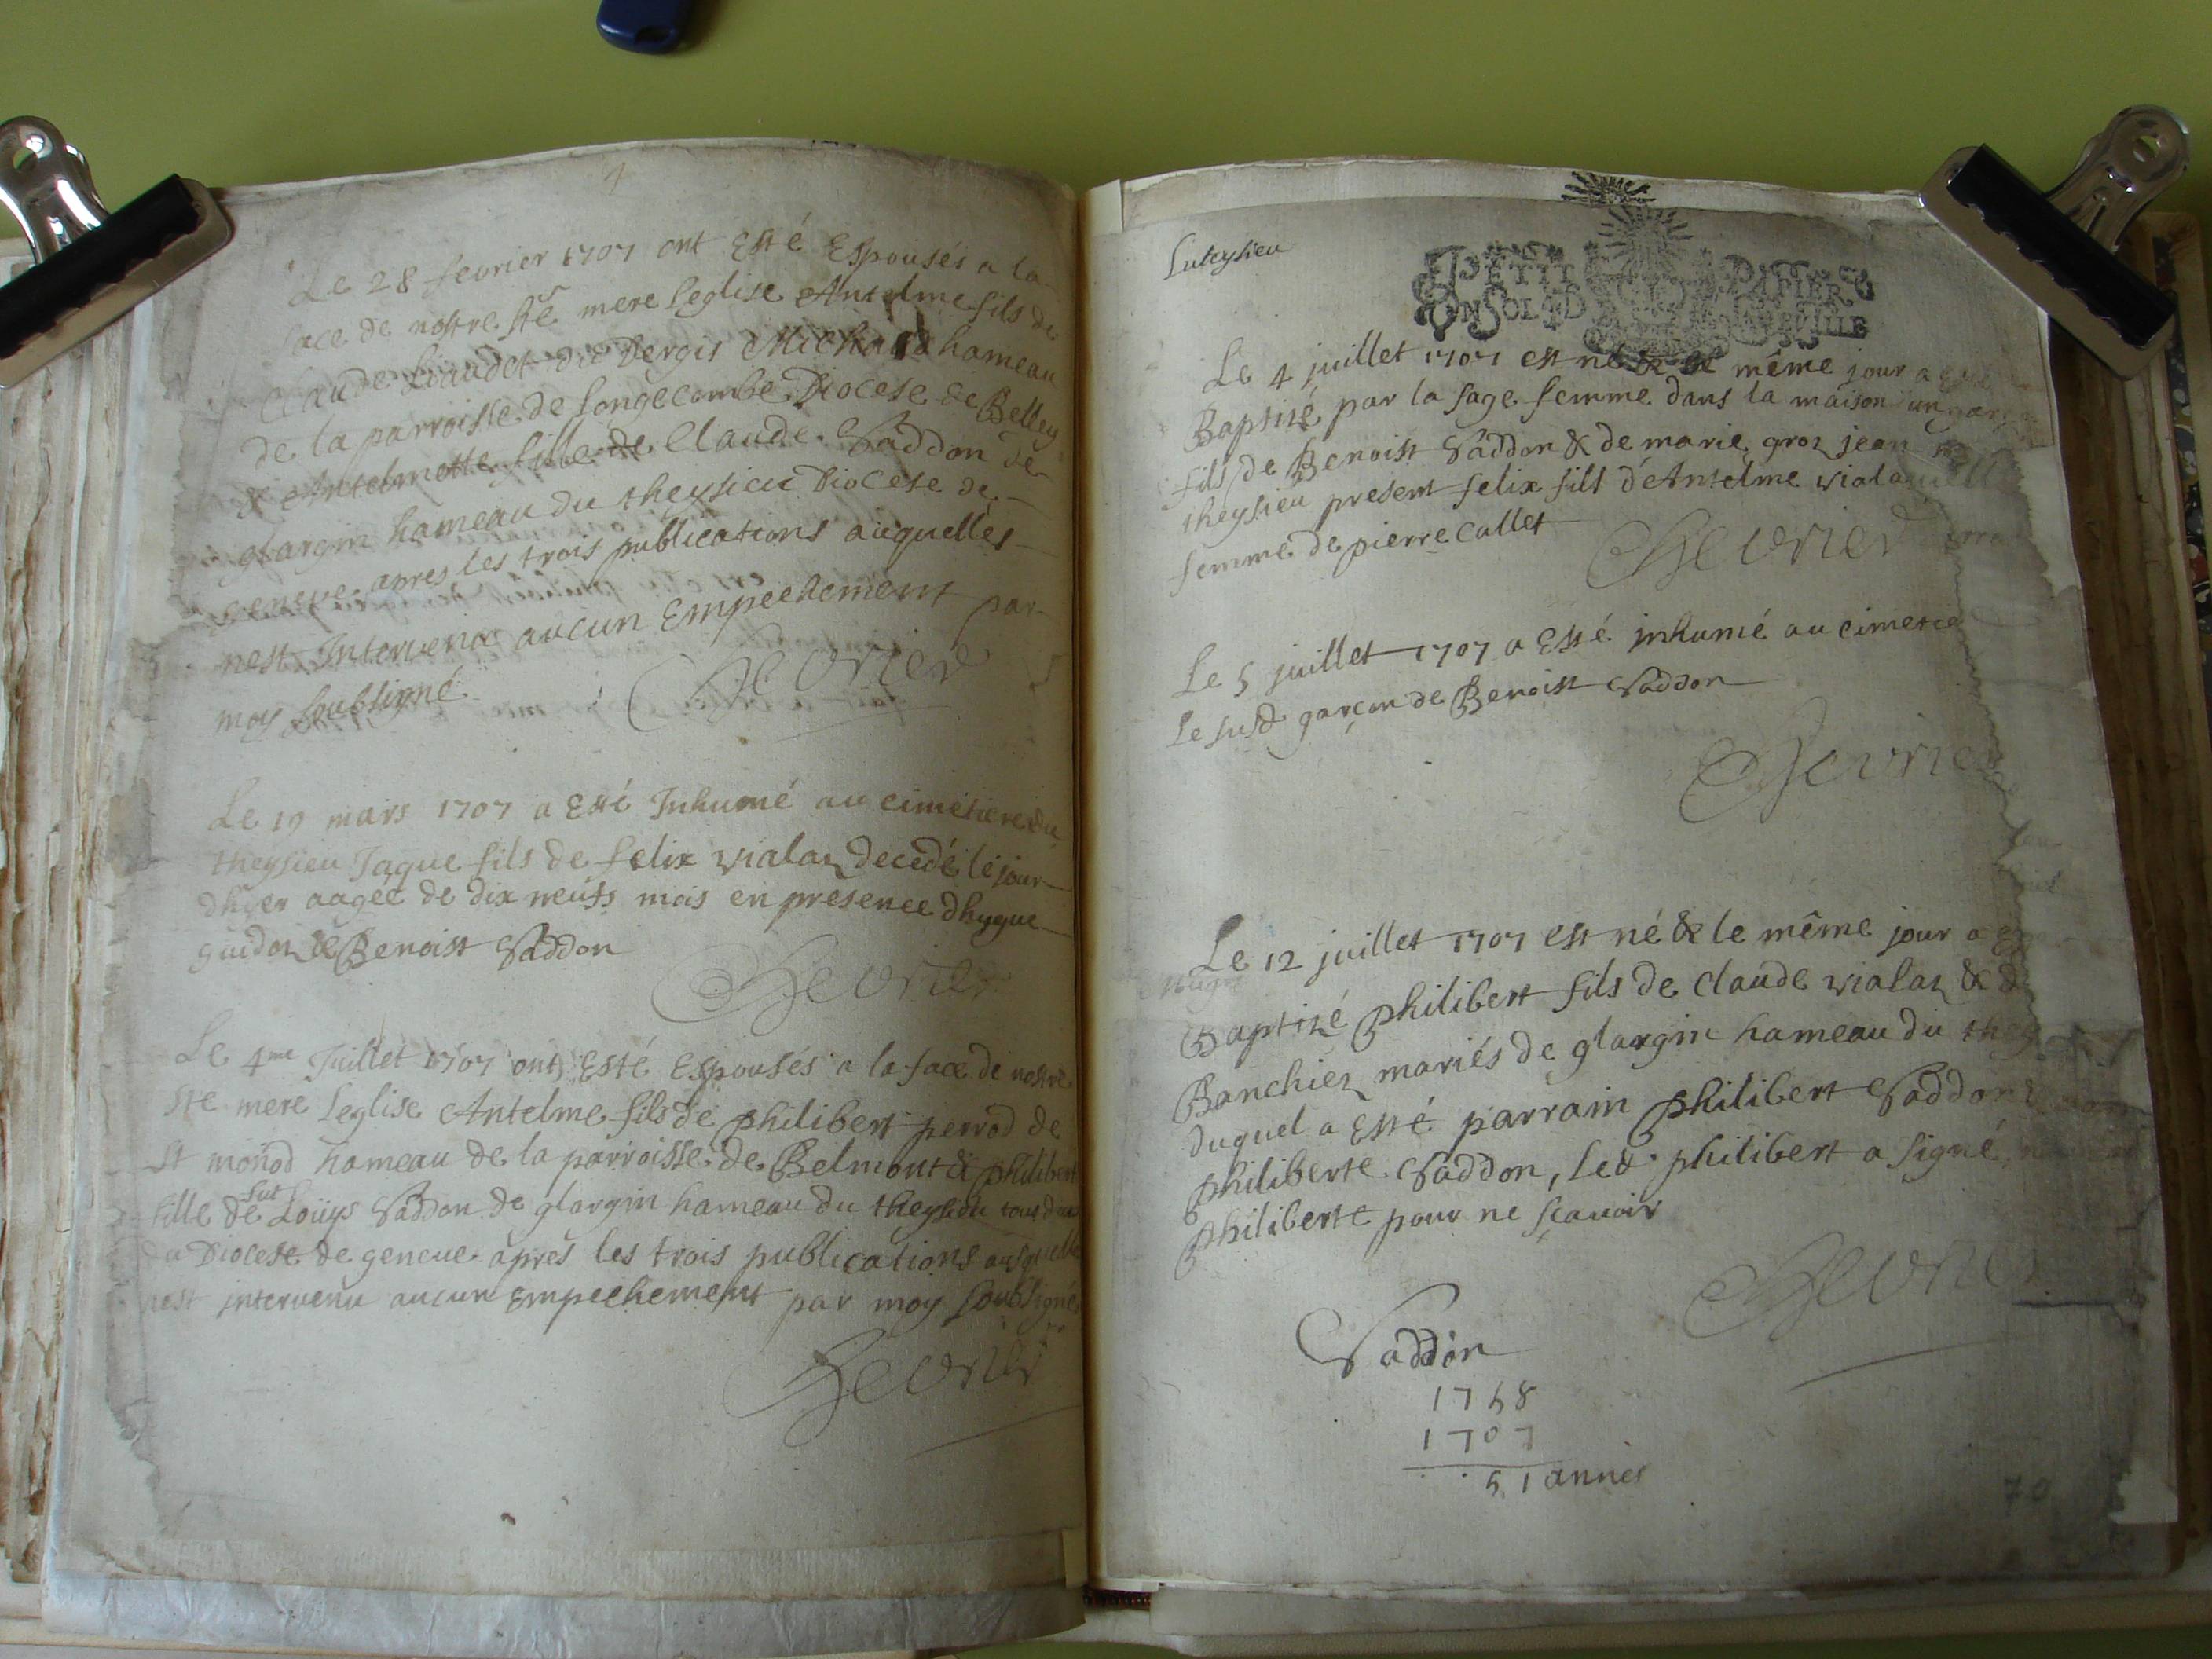 Le 28 fevrier 1707 ont Esté Espousés a la
face de nostre Ste mere leglise Antelme fils de
Claude Liaudet dit Vergis hameau
de la parroisse de longecombe Diocese de Belley
& Antelmette fille de Claude Vaddon de
glargin hameau du theysieu Diocese de
geneve apres les trois publications auquelles
nest Intervenu aucun Empechement par
moy soubsigné Chevrier
Le 19 mars 1707 a Esté Inhumé au cimetiere du
theysieu Jaque fils de felix vialaz decedé le jour
dhyer aagée de dix neufs mois en presence dhugue
guidoz & Benoist Vaddon
Chevrier
Le 4me Juillet 1707 ont Esté Espousés a la face de nostre
Ste mere leglise Antelme fils de philibert perrod de
St moñod hameau de la parroisse de Belmont & philibert
fille de fut Loüys Vaddon de glargin hameau du theysieu tous deux
du Diocese de geneue apres les trois publications ausquelle
nest intervenu aucun Empechement par moy soubsigné
Chevrier
Luteysieu
PETIT PAPIER
UN SOL
Le 4 juillet 1707 est né & le même jour a
Baptizé par la sage femme dans la maison un
fils de Benoist Vaddon & de marie groz jean
theysieu present felix fils d'Antelme
femme de pierre Callet Chevrier
Le 5 juillet 1707 a Esté inhumé au cimetie
Le susd garçon de Benoist Vaddon
Chevrier
Le 12 juillet 1707 est né & le même jour a
Baptizé philibert fils de claude vialaz & d
Banchiez mariés de glargin hameau du they
duquel a Esté parrain philibert Vaddon
philiberte Vaddon, Led. philibert a signé
philiberte pour ne sçavoir
Chevrier
Vaddon
1758
1707
51 annés
70